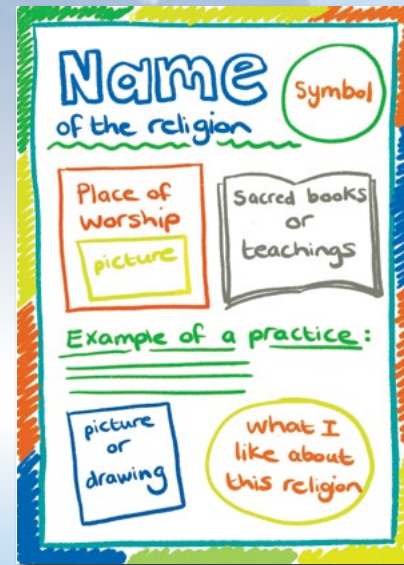 Name
of the religion
Symbol
Place of
worship
picture
Sacred books
or
teachings
Example of a practice:
picture
or
drawing
what I
like about
this religion